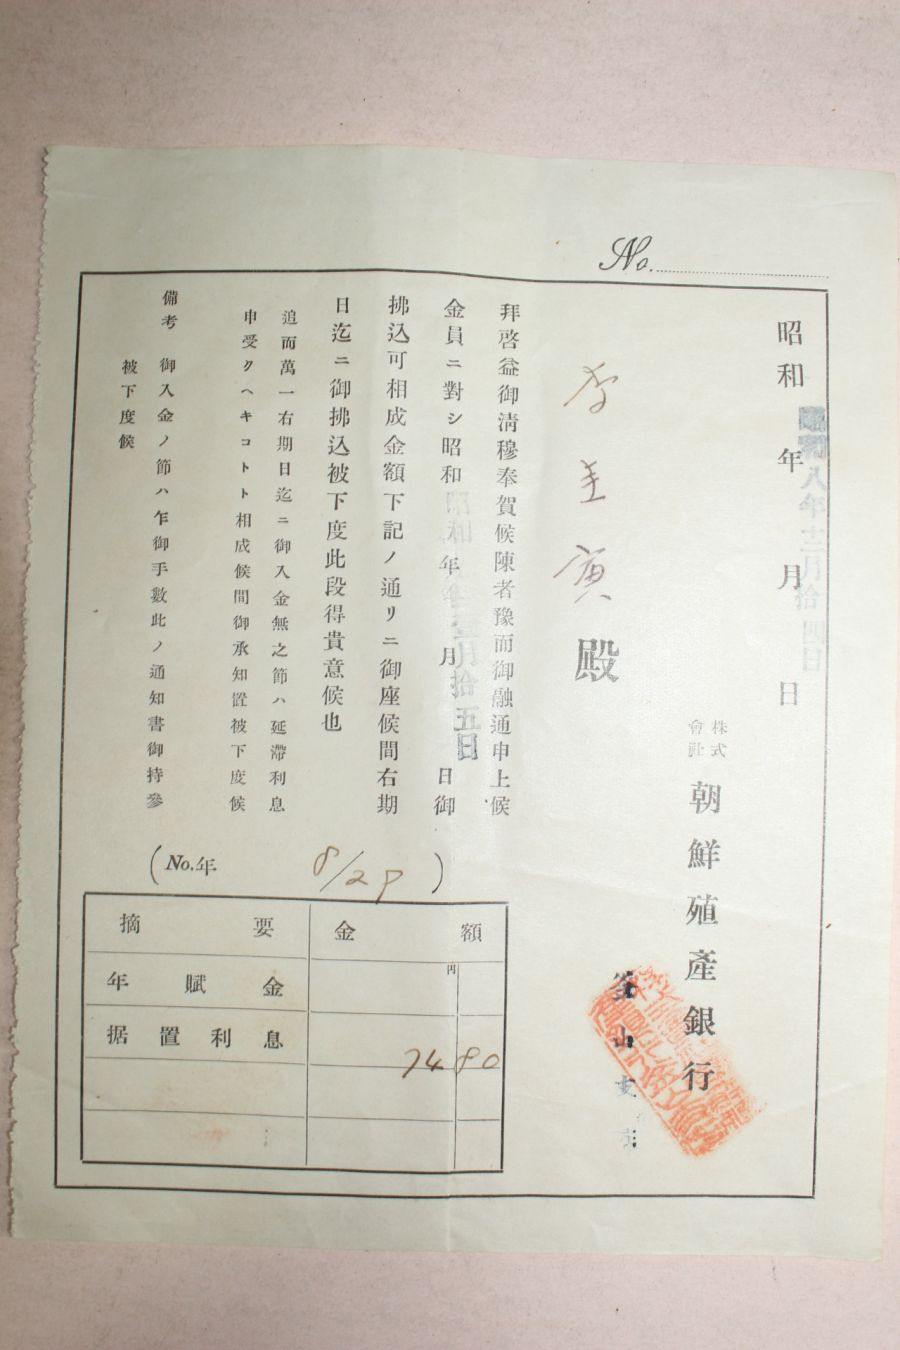 No.
昭和 年 月 日
昭和八年十二月拾四日
株式會社 朝鮮殖產銀行
釜山支店
李 圭 寅 殿
拜啓益御淸穆奉賀候陳者豫而御融通申上候
金員ニ對シ昭和 年 月 日御
昭和 年壹月拾五日
拂込可相成金額下記ノ通リニ御座候間右期
日迄ニ御拂込被下度此段得貴意候也
追而萬一右期日迄ニ御入金無之節ハ延滯利息
申受クヘキコトト相成候間御承知置被下度候
備考 御入金ノ節ハ乍御手數此ノ通知書御持參
被下度候
(No.年 8/29)
摘要 金額
年賦金 円
据置利息 74 80